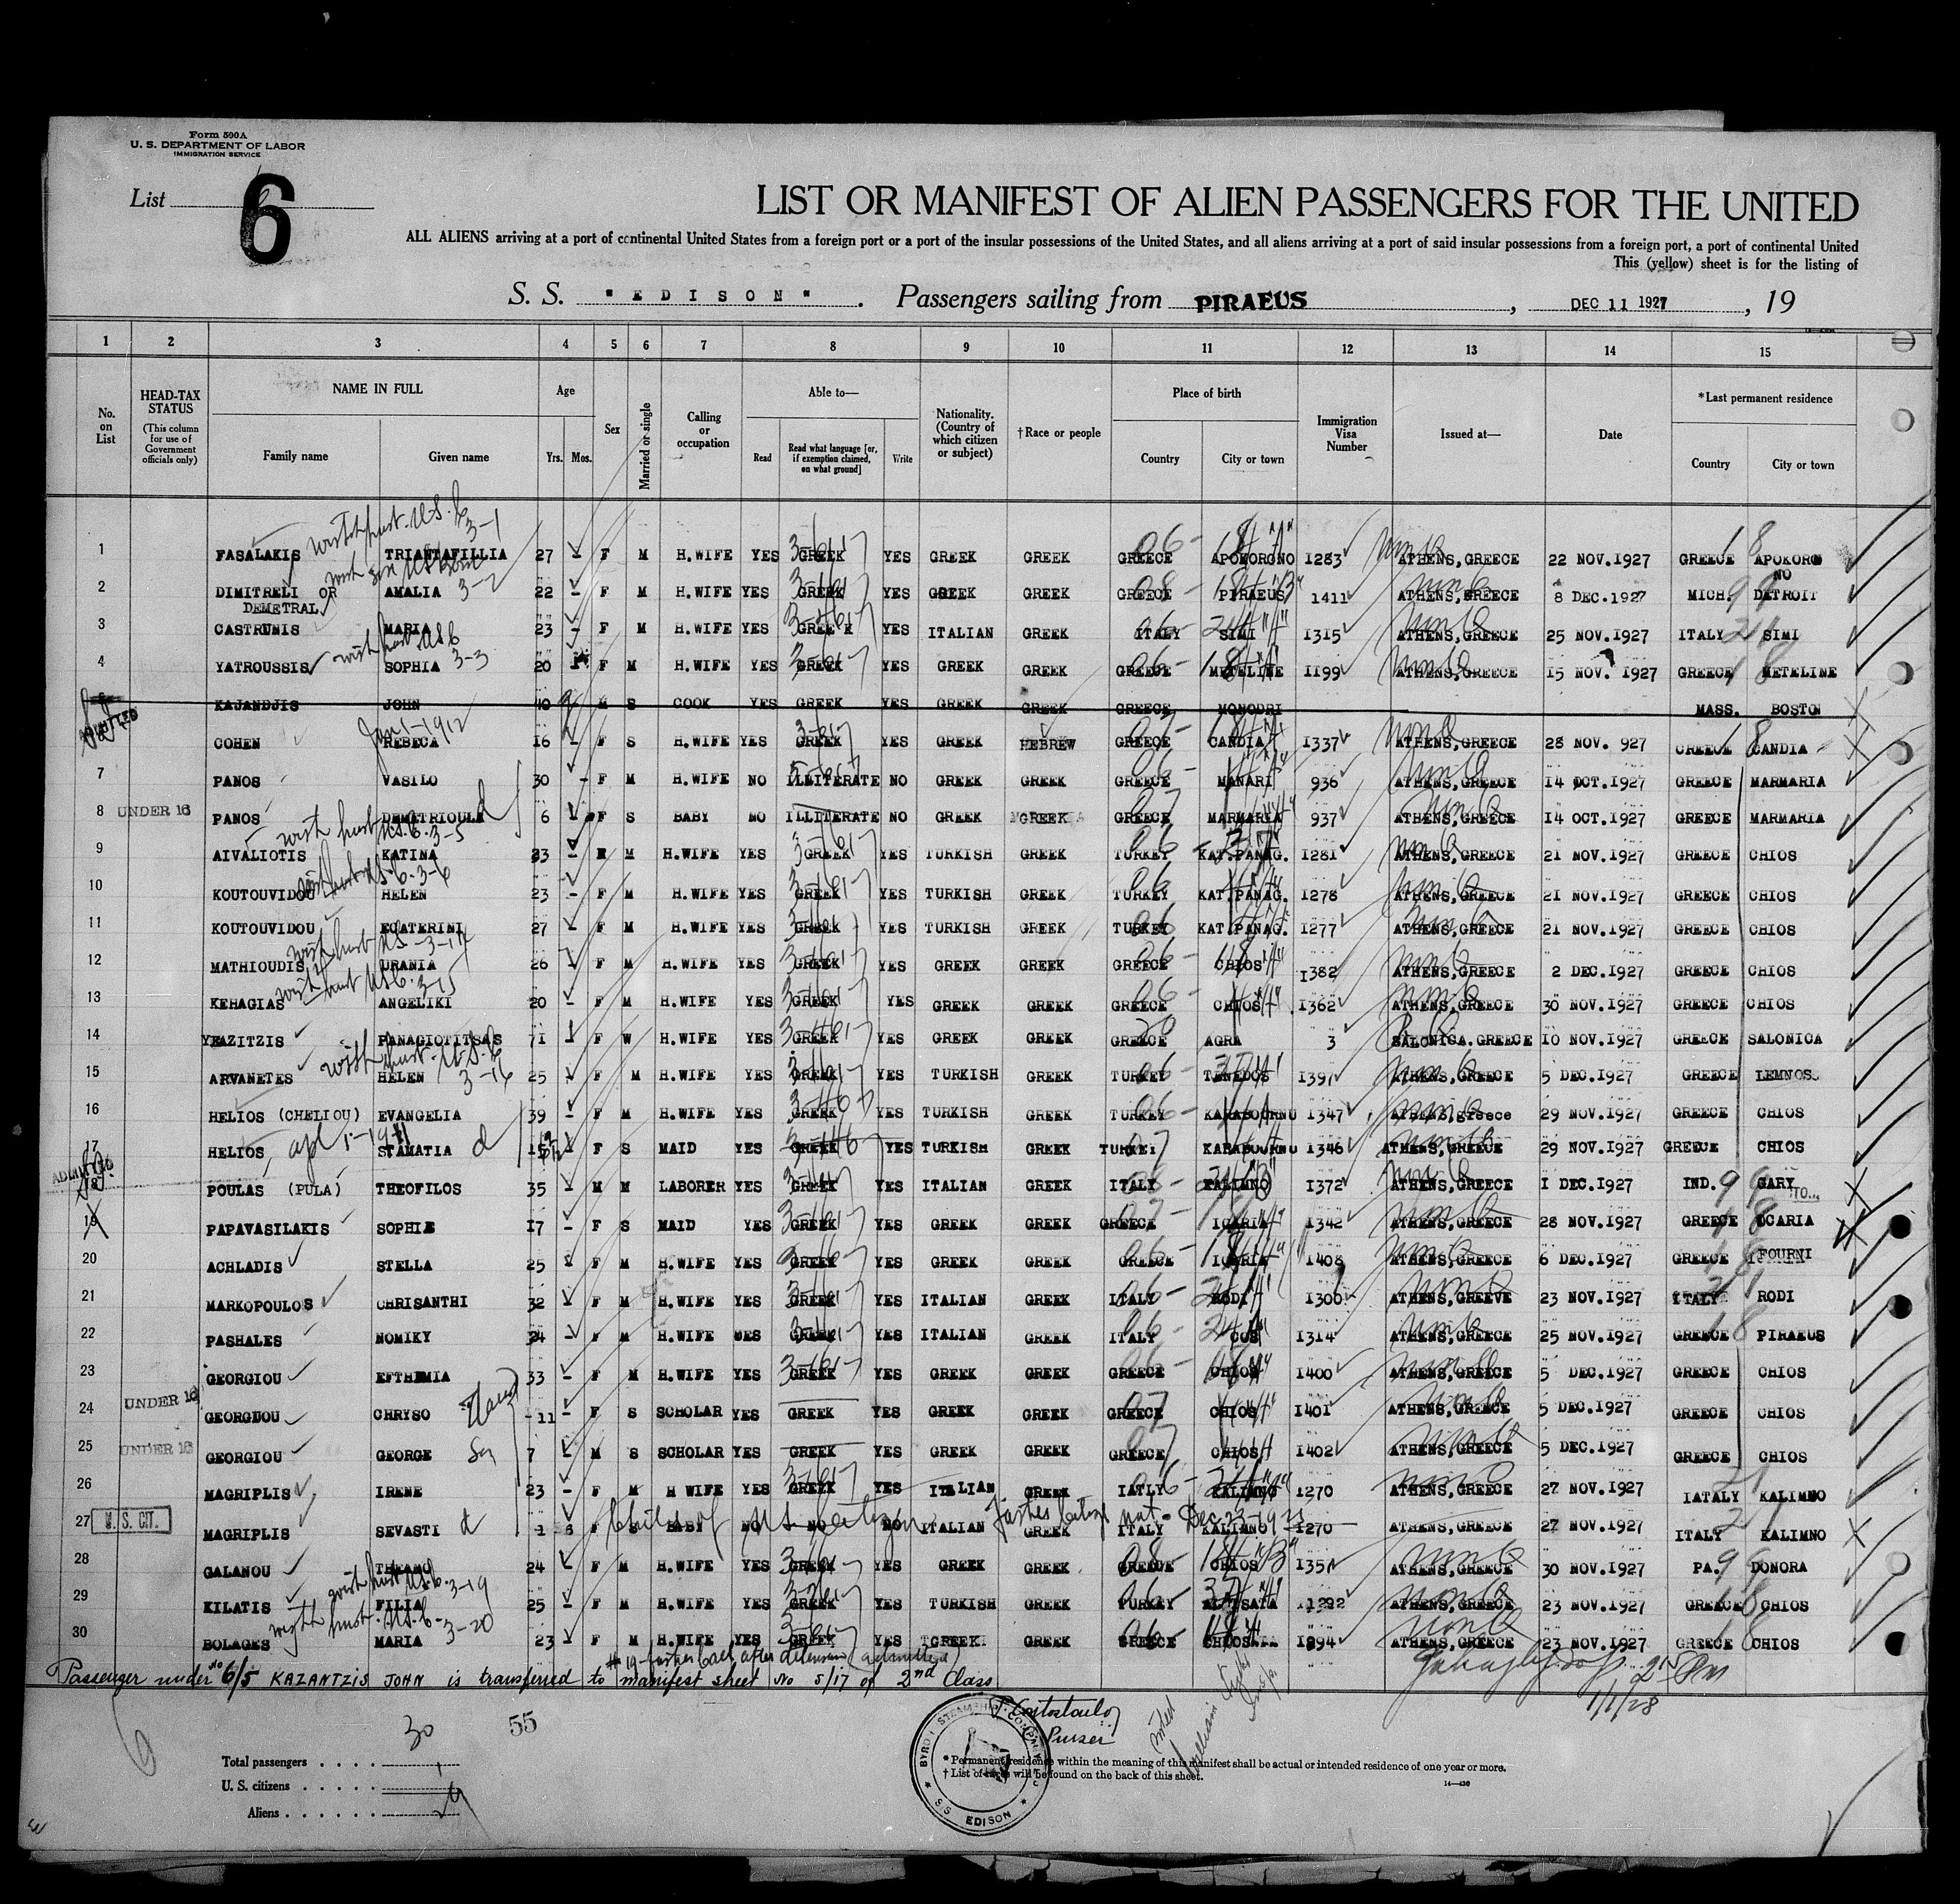 Form 500A
U. S. DEPARTMENT OF LABOR
IMMIGRATION SERVICE
List 6
LIST OR MANIFEST OF ALIEN PASSENGERS FOR THE UNITED
ALL ALIENS arriving at a port of continental United States from a foreign port or a port of the insular possessions of the United States, and all aliens arriving at a port of said insular possessions from a foreign port, a port of continental United
This (yellow) sheet is for the listing of
S. S. "EDISON". Passengers sailing from PIRAEUS, DEC 11 1927, 19
1 2 3 4 5 6 7 8 9 10 11 12 13 14 15
No. on List
HEAD-TAX STATUS (This column for use of Government officials only)
NAME IN FULL Family name Given name
Age Yrs. Mos.
Sex
Married or single
Calling or occupation
Able to— Read Read what language [or, if exemption claimed, on what ground] Write
Nationality. (Country of which citizen or subject)
†Race or people
Place of birth Country City or town
Immigration Visa Number
Issued at—
Date
*Last permanent residence Country City or town
with husb. U.S.C. 3-1
1 FASALAKIS TRIANTAFILLIA 27 - F M H.WIFE YES GREEK YES GREEK GREEK GREECE APOKORONO 1283 ATHENS,GREECE 22 NOV.1927 GREECE APOKORO NO
2 DIMITRELI OR DEMETRAL AMALIA 3-2 22 - F M H.WIFE YES GREEK YES GREEK GREEK GREECE PIRAEUS 1411 ATHENS,GREECE 8 DEC.1927 MICH. DETROIT
3 CASTRUNIS MARIA 23 - F M H.WIFE YES GREEK YES ITALIAN GREEK ITALY SIMI 1315 ATHENS,GREECE 25 NOV.1927 ITALY SIMI
with husb USC 3-3
4 YATROUSSIS SOPHIA 20 F M H.WIFE YES GREEK YES GREEK GREEK GREECE METELINE 1199 ATHENS,GREECE 15 NOV. 1927 GREECE METELINE
KAJANDJIS JOHN 40 M S COOK YES GREEK YES GREEK GREEK GREECE MONODRI MASS. BOSTON
ADMITTED
Jan 1-1912
COHEN REBECA 16 - F S H.WIFE YES GREEK YES GREEK HEBREW GREECE CANDIA 1337 ATHENS,GREECE 28 NOV. 927 GREECE CANDIA
7 PANOS VASILO 30 - F M H.WIFE NO ILLITERATE NO GREEK GREEK GREECE MANARI 936 ATHENS,GREECE 14 OCT.1927 GREECE MARMARIA
8 UNDER 16 PANOS DEMETRIOULA d 6 F S BABY NO ILLITERATE NO GREEK GREEK GREECE MARMARIA 937 ATHENS,GREECE 14 OCT.1927 GREECE MARMARIA
with husb U.S.C. 3-5
9 AIVALIOTIS KATINA 33 - F M H.WIFE YES GREEK YES TURKISH GREEK TURKEY KAT.PANAG. 1281 ATHENS,GREECE 21 NOV.1927 GREECE CHIOS
10 KOUTOUVIDOU HELEN 23 - F M H.WIFE YES GREEK YES TURKISH GREEK TURKEY KAT.PANAG. 1278 ATHENS,GREECE 21 NOV.1927 GREECE CHIOS
11 KOUTOUVIDOU ECATERINI 27 - F M H.WIFE YES GREEK YES TURKISH GREEK TURKEY KAT.PANAG. 1277 ATHENS,GREECE 21 NOV.1927 GREECE CHIOS
with husb US-3-14
12 MATHIOUDIS URANIA 26 F M H.WIFE YES GREEK YES GREEK GREEK GREECE CHIOS 1382 ATHENS,GREECE 2 DEC.1927 GREECE CHIOS
with husb USC.3-15
13 KEHAGIAS ANGELIKI 20 - F M H.WIFE YES GREEK YES GREEK GREEK GREECE CHIOS 1362 ATHENS,GREECE 30 NOV.1927 GREECE CHIOS
14 YAZITZIS PANAGIOTITSAS 71 - F W H.WIFE YES GREEK YES GREEK GREEK GREECE AGRA 3 SALONICA.GREECE 10 NOV.1927 GREECE SALONICA
with husb. U.S.C. 3-16
15 ARVANETES HELEN 25 - F M H.WIFE YES GREEK YES TURKISH GREEK TURKEY TENEDOS 1397 ATHENS,GREECE 5 DEC.1927 GREECE LEMNOS
16 HELIOS (CHELIOU) EVANGELIA 39 - F M H.WIFE YES GREEK YES TURKISH GREEK TURKEY KARABOURNU 1347 ATHENS,greece 29 NOV.1927 GREECE CHIOS
17 HELIOS STAMATIA d 15 F S MAID YES GREEK YES TURKISH GREEK TURKEY KARABOURNU 1346 ATHENS,GREECE 29 NOV.1927 GREECE CHIOS
ADMITTED
18 POULAS (PULA) THEOFILOS 35 - M M LABORER YES GREEK YES ITALIAN GREEK ITALY KALIMNO 1372 ATHENS,GREECE 1 DEC.1927 IND. GARY
19 PAPAVASILAKIS SOPHIE 17 - F S MAID YES GREEK YES GREEK GREEK GREECE ICARIA 1342 ATHENS,GREECE 28 NOV.1927 GREECE ICARIA
20 ACHLADIS STELLA 25 - F M H.WIFE YES GREEK YES GREEK GREEK GREECE ICARIA 1408 ATHENS,GREECE 6 DEC.1927 GREECE FOURNI
21 MARKOPOULOS CHRISANTHI 32 F M H.WIFE YES GREEK YES ITALIAN GREEK ITALY RODI 1300 ATHENS,GREEVE 23 NOV.1927 ITALY RODI
22 PASHALES NOMIKY 34 - F M H.WIFE YES GREEK YES ITALIAN GREEK ITALY COS 1314 ATHENS,GREECE 25 NOV.1927 GREECE PIRAEUS
23 GEORGIOU EFTHIMIA 33 - F M H.WIFE YES GREEK YES GREEK GREEK GREECE CHIOS 1400 ATHENS,GREECE 5 DEC.1927 GREECE CHIOS
24 UNDER 16 GEORGIOU CHRYSO 11 - F S SCHOLAR YES GREEK YES GREEK GREEK GREECE CHIOS 1401 ATHENS,GREECE 5 DEC.1927 GREECE CHIOS
25 UNDER 16 GEORGIOU GEORGE 7 - M S SCHOLAR YES GREEK YES GREEK GREEK GREECE CHIOS 1402 ATHENS,GREECE 5 DEC.1927 GREECE CHIOS
26 MAGRIPLIS IRENE 23 - F M H WIFE YES GREEK YES ITALIAN GREEK IATLY KALIMNO 1270 ATHENS,GREECE 27 NOV.1927 IATALY KALIMNO
27 U. S. CIT. MAGRIPLIS SEVASTI d F BABY NO NO NO ITALIAN GREEK ITALY KALIMNO 1270 ATHENS,GREECE 27 NOV.1927 ITALY KALIMNO
child of US citizen
28 GALANOU 24 - F M H.WIFE YES GREEK YES GREEK GREEK GREECE CHIOS 1357 ATHENS,GREECE 30 NOV.1927 PA. DONORA
with husb USC. 3-19
29 KILATIS FILIA 25 - F M H.WIFE YES GREEK YES TURKISH GREEK TURKEY 1292 ATHENS,GREECE 23 NOV.1927 GREECE CHIOS
with husb. U.S.C- 3-20
30 BOLAGES MARIA 23 - F M H.WIFE YES GREEK YES GREEK GREECE CHIOS 1294 ATHENS,GREECE 23 NOV.1927 GREECE CHIOS
Passenger under No 6/5 KAZANTZIS JOHN is transferred to manifest sheet No 5/17 of 2nd Class
1/1/28
30 55
Purser
Total passengers
U. S. citizens
Aliens
S/S EDISON
* Permanent residence within the meaning of this manifest shall be actual or intended residence of one year or more.
† List of races will be found on the back of this sheet.
14—430